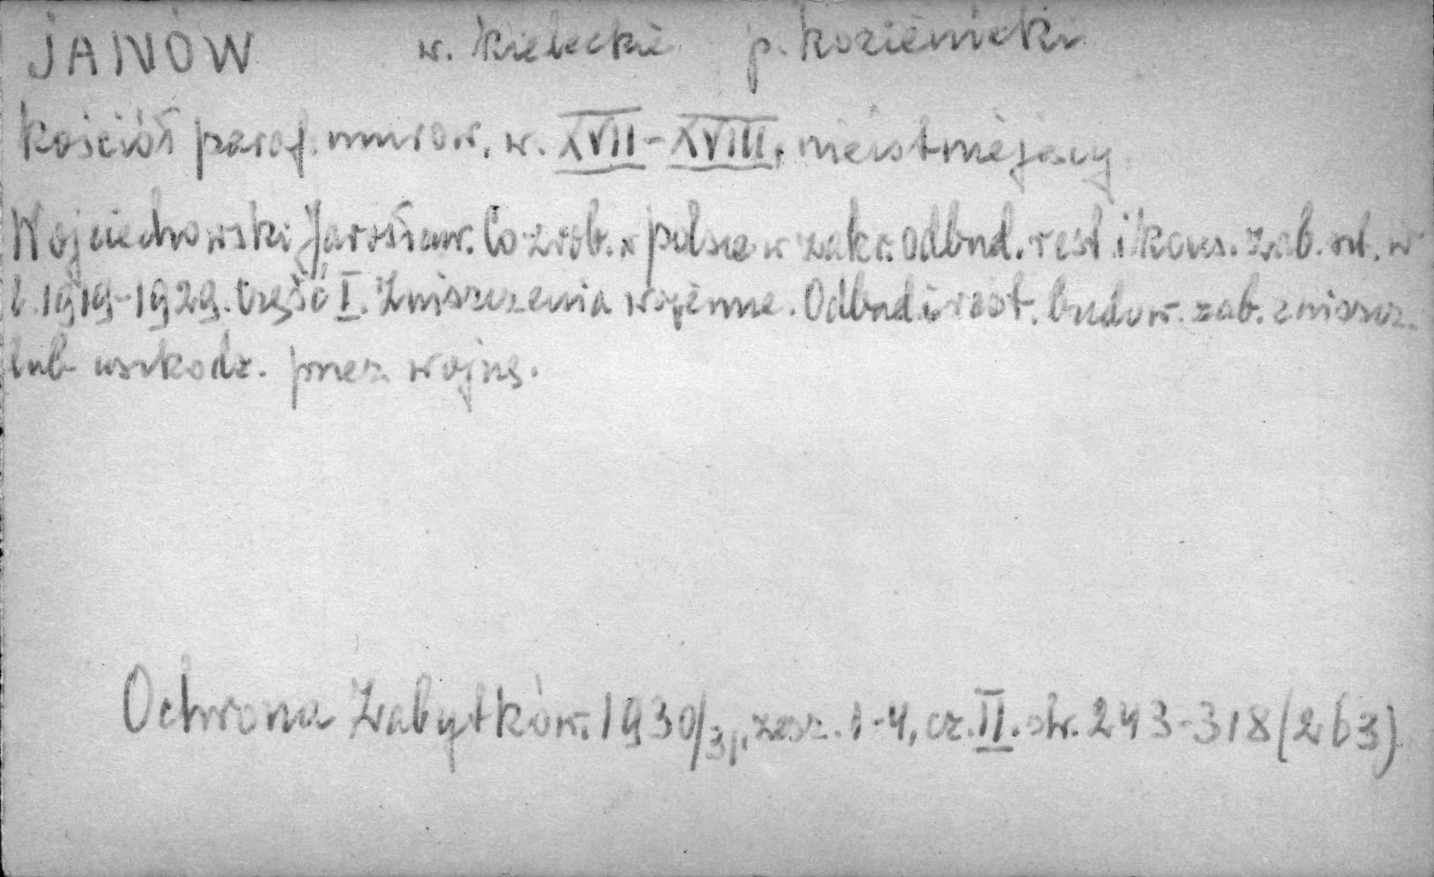 JANÓW w. kieleckie p. kozienicki
Kościół paraf. murow. w. XVII-XVIII, nieistniejący
Wojciechowski Jarosław. Co zrob. w Polsce w zakr. odbud. rest. i kons. zab. szt. w
l. 1919-1929. Część I. Zniszczenia wojenne. Odbud. i rest. budow. zab. zniszcz.
lub uszkodz. przez wojnę.
Ochrona Zabytków. 1930/31, zesz. 1-4, cz. II. str. 243-318 (263)